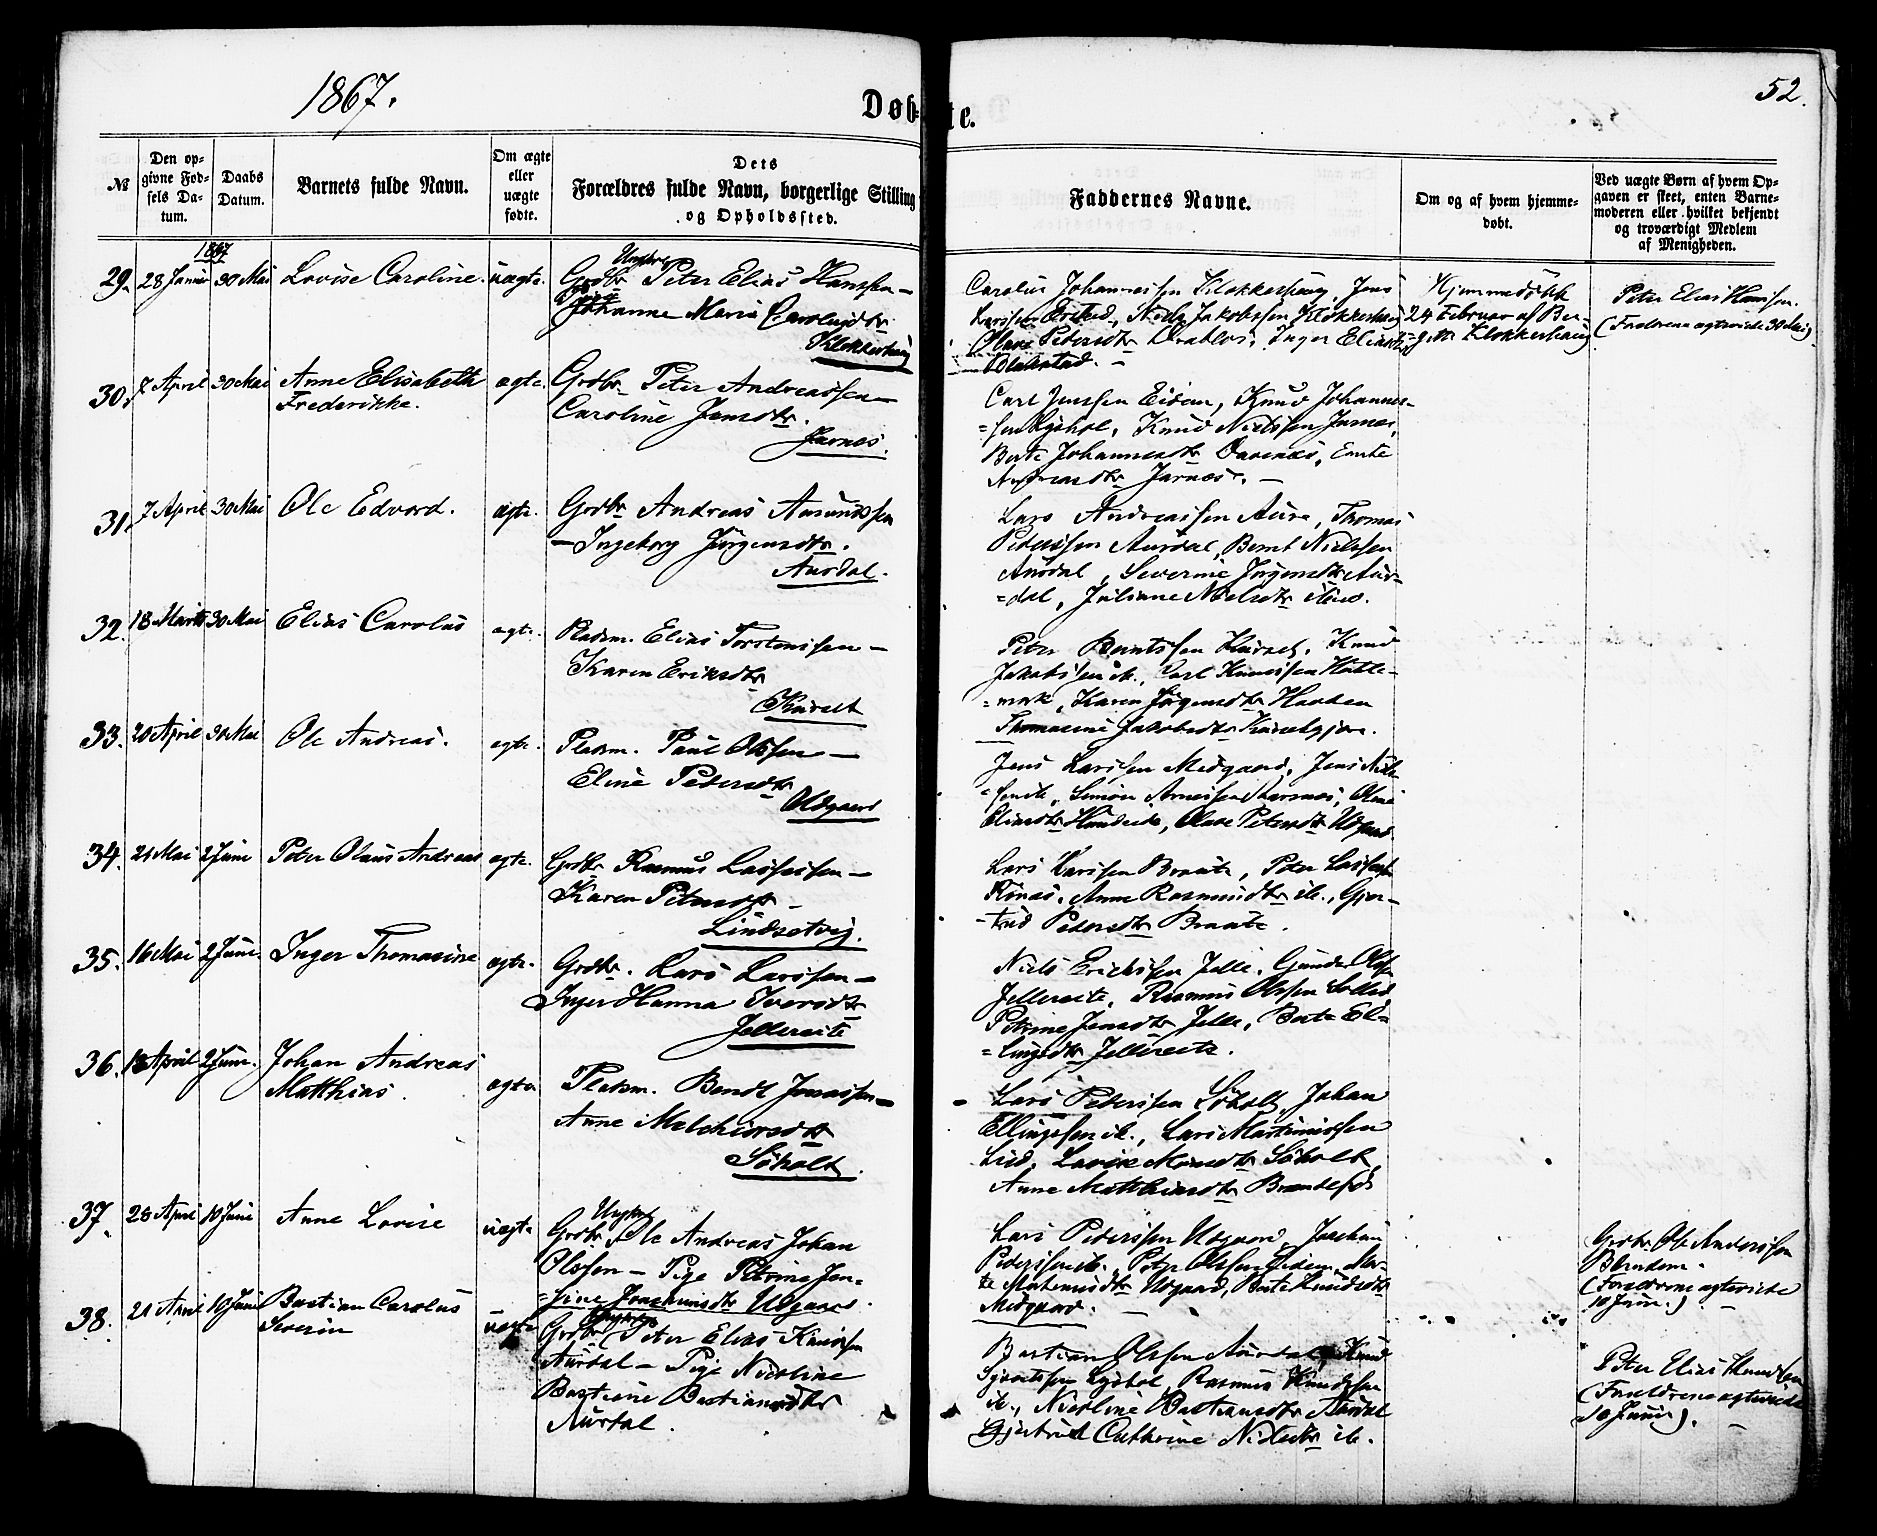 1867.
Døbte.
52.
№
Den opgivne Fødsels Datum.
Daabs Datum.
Barnets fulde Navn.
Om ægte eller uægte fødte.
Dets Forældres fulde Navn, borgerlige Stilling og Opholdssted.
Faddernes Navne.
Om og af hvem hjemmedøbt.
Ved uægte Børn af hvem Opgaven er skeet, enten Barnemoderen eller hvilket bekjendt og troværdigt Medlem af Menigheden.
1867
29. 28 Januar 30 Mai Lovise Caroline. uægte. Ungkrl
Grdbr Peter Elias Hanssen –
Johanne Marie Carolusdtr
Klokkerhaug
Carolus Johannessen Klokkerhaug, Jens
Larssen, Niels Jakobssen Klokkerhaug
Olave Pedersdtr, Inger Eliasdtr
Blakstad. –
Hjemmedöbt
24 Februar af Ber-
Klokkerhaug
Peter Elias Hanssen.
(Forældrene agteviede 30 Mai)
30. 7 April 30 Mai Anne Elisabeth ægte. Grdbr Peter Andreassen –
Frederikke. Caroline Jensdtr.
Jarnes.
Carl Jenssen Eidem, Knud Johannes-
=sen Lyshol, Knud Nielssen Jarnes,
Berte Johannesdtr
Andreasdtr Jarnes. –
31. 7 April 30 Mai Ole Edvard. ægte. Grdbr Andreas Amundssen
– Ingeborg Jörgensdtr.
Aursdal.
Lars Andreassen Aure, Thomas
Pederssen Aursdal, Bernt Nielssen
Aursdal, Severine Jörgensdtr Aurs-
=dal, Juliane Nielsdtr
32. 18 Marts 30 Mai Elias Carolus ægte. Pladsm. Elias Torstenssen –
Karen Eriksdtr
Peter Berntssen, Knud
Jakobssen ib., Carl Knudssen Hatle-
=mark, Karen Jörgensdtr
Thomasine Jakobsdtr
33. 20 April 30 Mai Ole Andreas. ægte. Pladsm. Paul Olssen –
Eline Pedersdtr
Udgaard
Jens Larssen Midgaard, Jens Niels-
=sen ib., Simon Arnessen
Eliasdtr, Olave Petersdtr Udgaard
34. 21 Mai 2 Juni Peter Olaus Andreas ægte. Grdbr Rasmus Lassessen –
Karen Petersdtr –
Lindsetvig.
Lars Larssen Braute, Peter Lassessen
Anne Rasmusdtr ib., Gjer-
=trud Pedersdtr Braute.
35. 16 Mai 2 Juni. Inger Thomasine ægte. Grdbr. Lars Larssen –
Inger Hanna Iversdtr
Jellereite
Niels Erickssen Jelle, Gunder Olssen
Jellereite, Rasmus Olssen
Petrine Jensdtr Jelle, Berte El-
=lingsdtr Jellereite.
36. 18 April 2 Juni. Johan Andreas ægte Pladsm. Bendt Jonassen –
Matthias. Anne Melchiorsdtr
Söholt.
Lars Pederssen Söholt, Johan
Ellingssen ib., Lars Martinussen
Lied, Lovise Söholt
Anne Matthiasdtr
37. 28 April 10 Juni Anne Lovise uægte Ungkrl
Grdbr Ole Andreas Johan
Olssen – Pige Petrine Jen-
=sine Joachimsdtr Udgaard.
Lars Pederssen Udgaard, Joachim
Pederssen ib., Peter Olssen Eidem, Mar-
te Udgaard, Berte Knudsdtr
Midgaard. –
Grdbr. Ole Anderssen
(Forældrene agteviede
10 Juni.) –
38. 21 April 10 Juni Bastian Carolus uægte Ungkrl
Severin Grdbr Peter Elias Knudssen
Aursdal – Pige Nicoline
Bastiane Bastiansdtr
Aursdal.
Bastian Olssen Aursdal, Knud
Lyshol, Rasmus Knudssen
ib., Nicoline Bastiansdtr Aursdal
Gjertrud Cathrine Nielsdtr ib.
Peter Elias Knudssen
(Forældrene agteviede
10 Juni). –